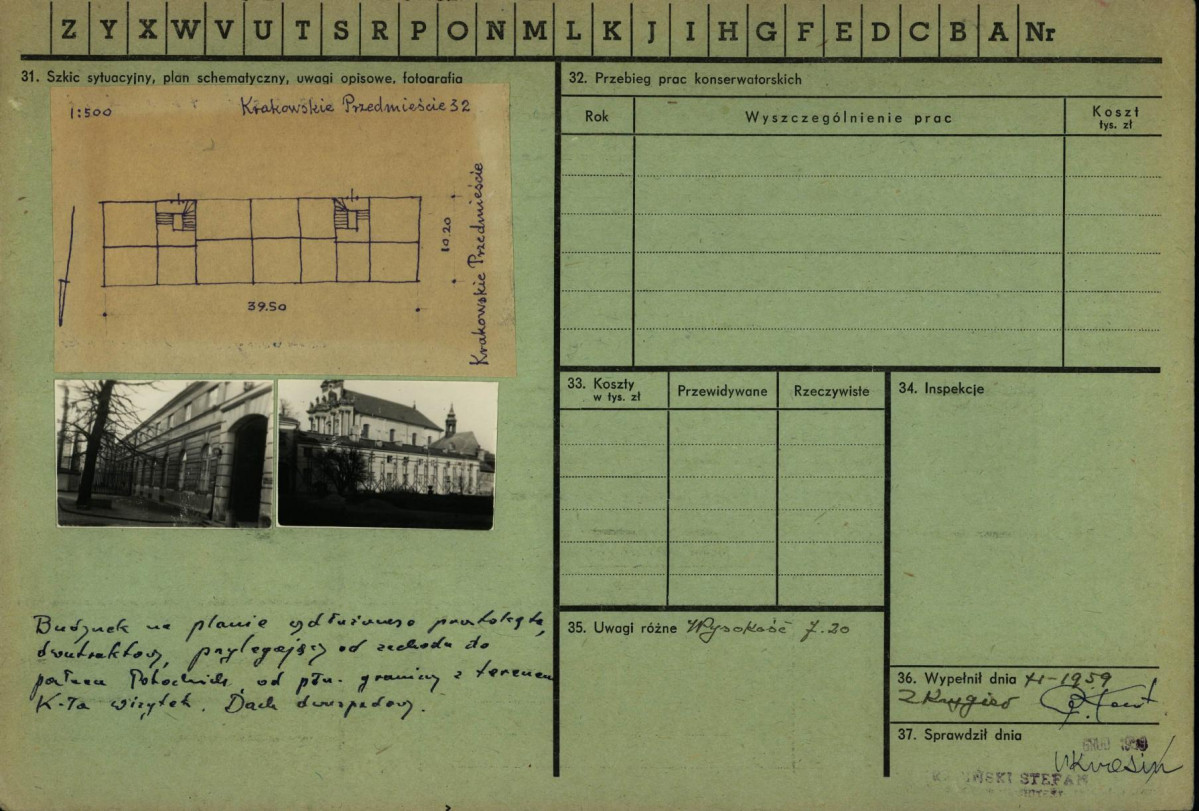 Z Y X W V U T S R P O N M L K J I H G F E D C B A Nr
31. Szkic sytuacyjny, plan schematyczny, uwagi opisowe, fotografia
1:500
Krakowskie Przedmieście 32
Krakowskie Przedmieście
10.20
39.50
Budynek na planie wydłużonego prostokąta,
dwutraktowy, przylegający od zachodu do
pałacu Potockich, od płn. graniczy z terenem
K-ła wizytek. Dach dwuspadowy.
32. Przebieg prac konserwatorskich
Rok
Wyszczególnienie prac
Koszt
tys. zł
33. Koszty
w tys. zł
Przewidywane
Rzeczywiste
34. Inspekcje
35. Uwagi różne Wysokość 7.20
36. Wypełnił dnia XI-1959
37. Sprawdził dnia
STEFAN